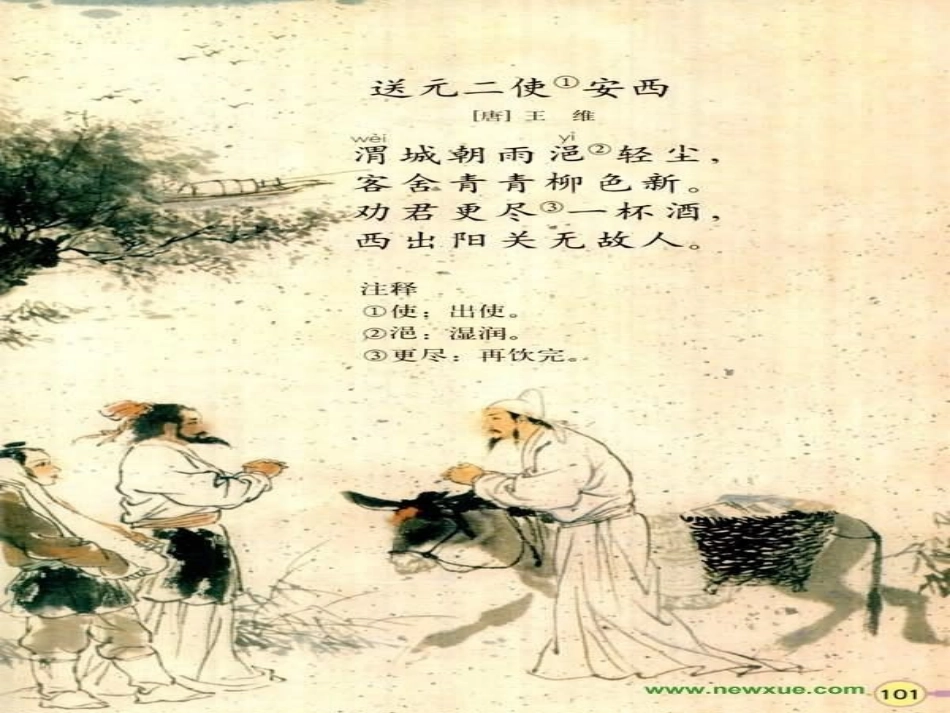 送元二使①安西
[唐] 王 维
wèi yì
渭城朝雨浥②轻尘，
客舍青青柳色新。
劝君更尽③一杯酒，
西出阳关无故人。
注释
①使：出使。
②浥：湿润。
③更尽：再饮完。
www.newxue.com
101